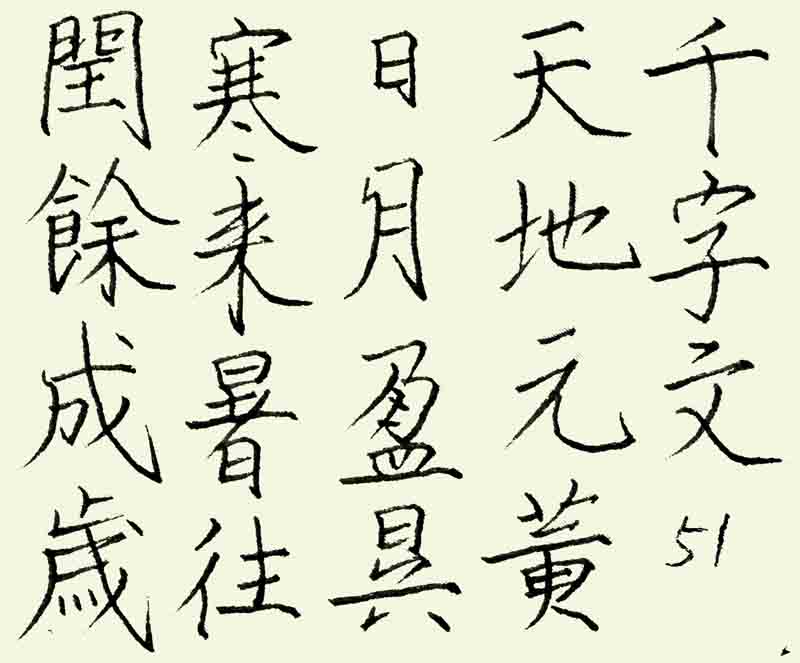 千字文 51
天地元黄
日月盈具
寒来暑往
閏餘成歳